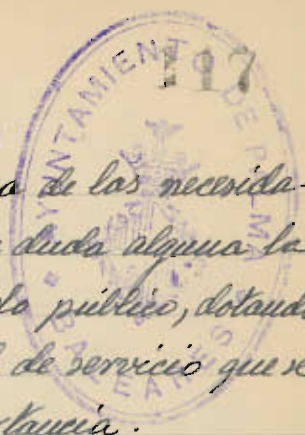 117
AYUNTAMIENTO DE PALMA
BALEARES
a de las necesida-
duda alguna la
do público, dotand
l de servicio que se
tancia.